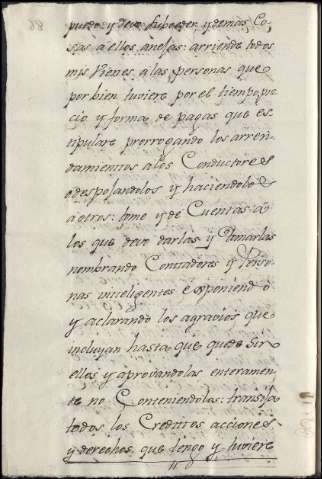 puedo y devo subceder y demas Co
sas a ellos anefas: arriende todos
mis Vienes, a las personas que
por bien tuviere por el tiempo, pre
cio y forma de pagas que es
tipulare prorrogando los arren
damientos a los Conductores
o despojandolos y haciendolo
a otros: tome y de Cuentas a
los que deve darlas, y tomarlas
nombrando Contadores y Perso
nas inteligentes exponiendo
y aclarando los agravios que
incluyan hasta que quede sin
ellos y aprovandolas enteramen
te no Conteniendolos: transija
todos los Creditos, acciones
y derechos, que tengo y tuviere